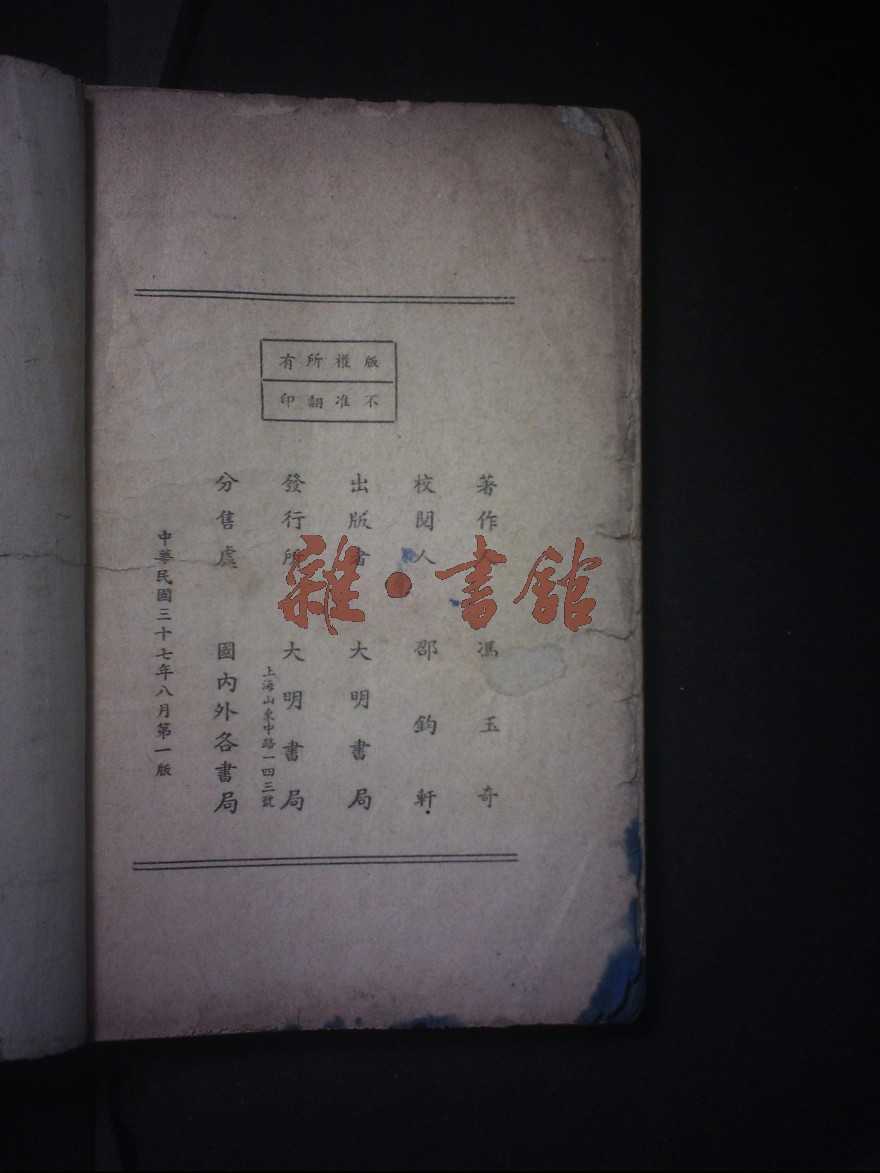 版權所有
不准翻印
著作人 馮玉奇
校閱人 邵鈞軒
出版者 大明書局
發行所 大明書局
上海山東中路一四三號
分售處 國內外各書局
中華民國三十七年八月第一版
雜·書館